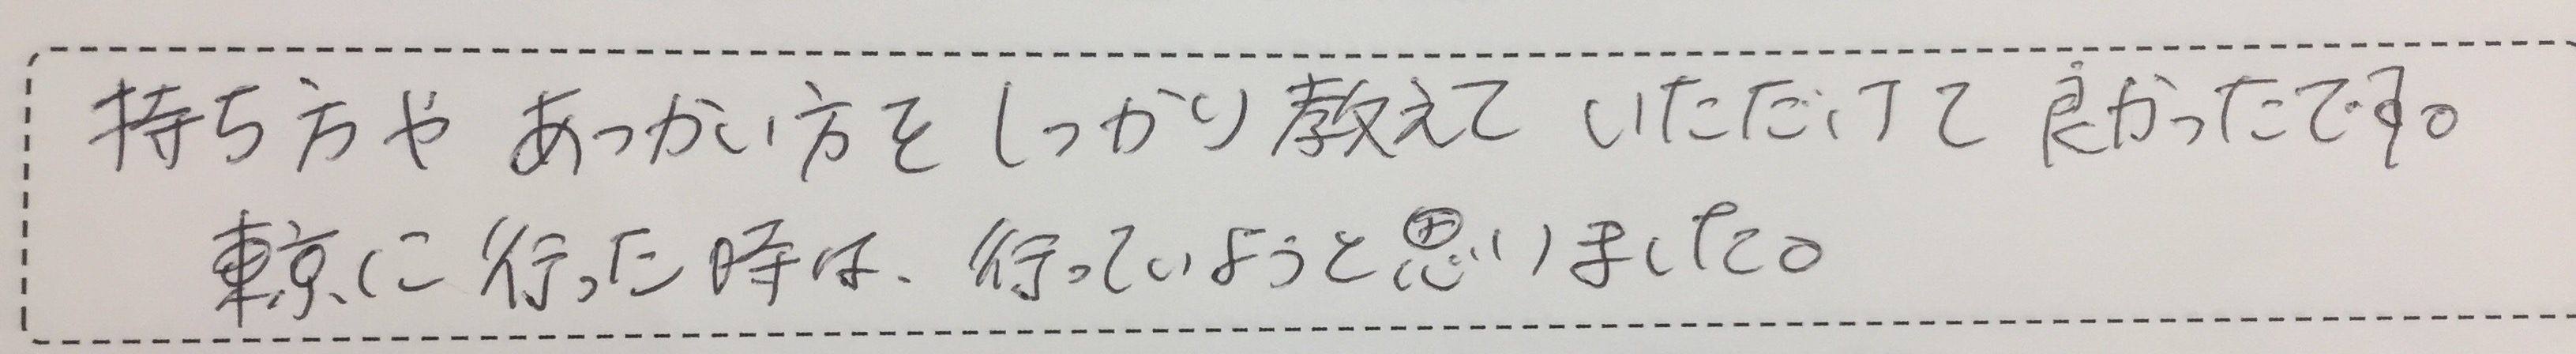 持ち方やあつかい方をしっかり教えていただけて良かったです。
東京に行った時は、行っていようと思いました。